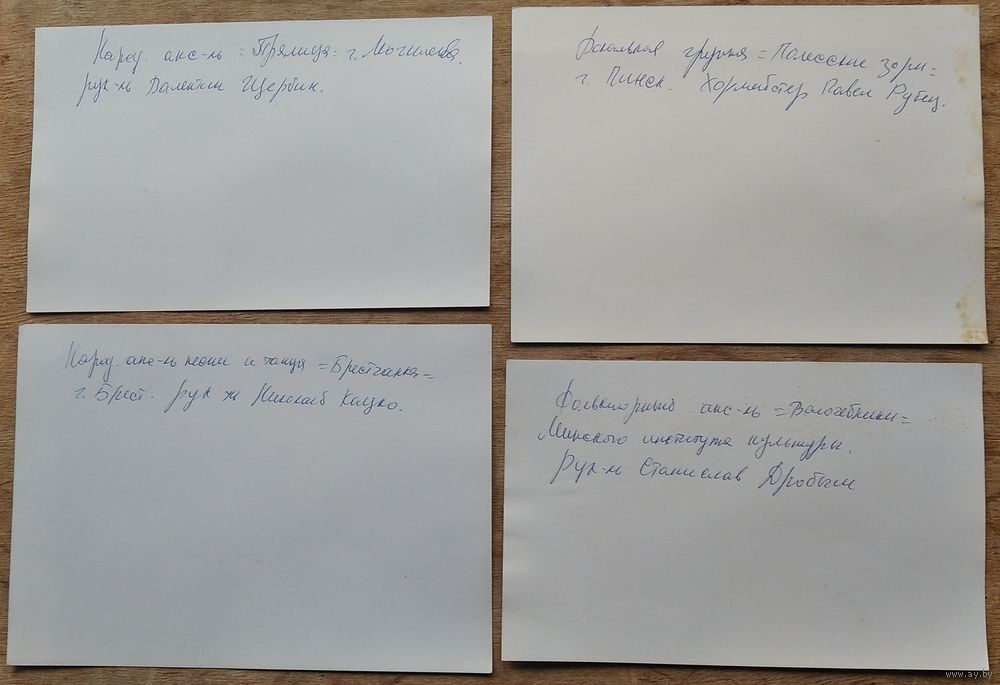 Народ. анс-ль =Прялица= г. Могилева.
рук-ль Валентин Щербин.
Вокальная группа =Полесские зори=
г. Пинск. Хормейстер Павел Рубец.
Народ. анс-ль песни и танца =Брестчанка=
г. Брест. рук-ль Николай Кацко.
Фольклорный анс-ль =Волочебники=
Минского института культуры.
Рук-ль Станислав Дробыш
www.ay.by